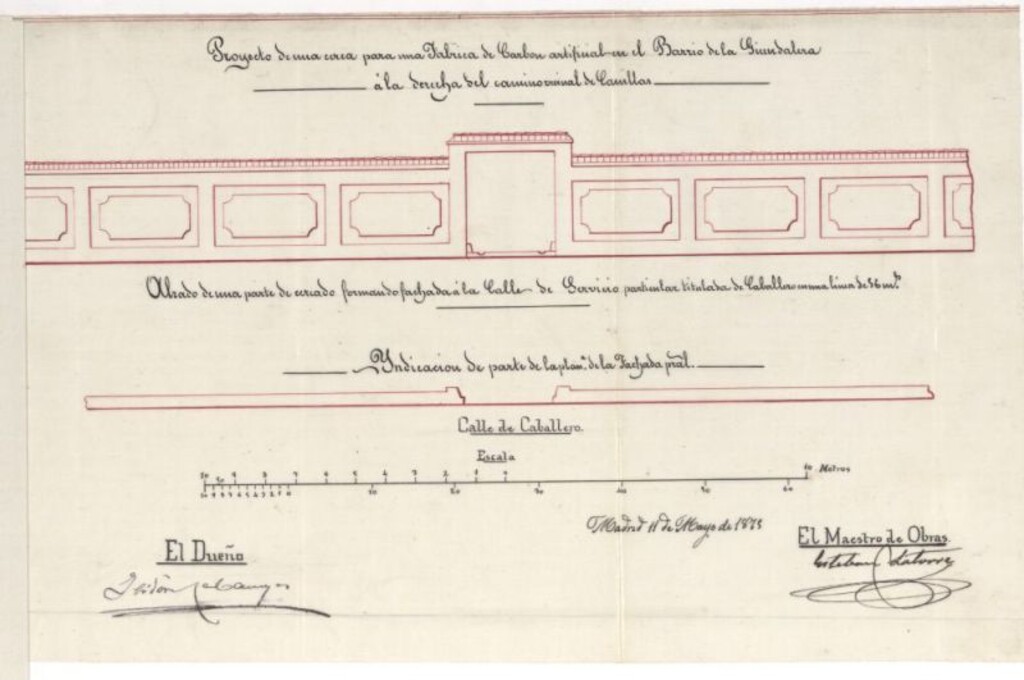 Proyecto de una cerca para una Fabrica de Carbon artificial en el Barrio de la Guindalera
á la derecha del camino vecinal de Canillas
Alzado de una parte de cercado formando fachada á la Calle de Servicio particular titulada de Caballero en una linea de 56 m.ᵗˢ
Yndicacion de parte de la plan.ᵃ de la Fachada pral.
Calle de Caballero.
Escala
10 Metros
10 20 30 40 50 60
Madrid 11 de Mayo de 1873
El Dueño
El Maestro de Obras.
Isidoro
Esteban Latorre